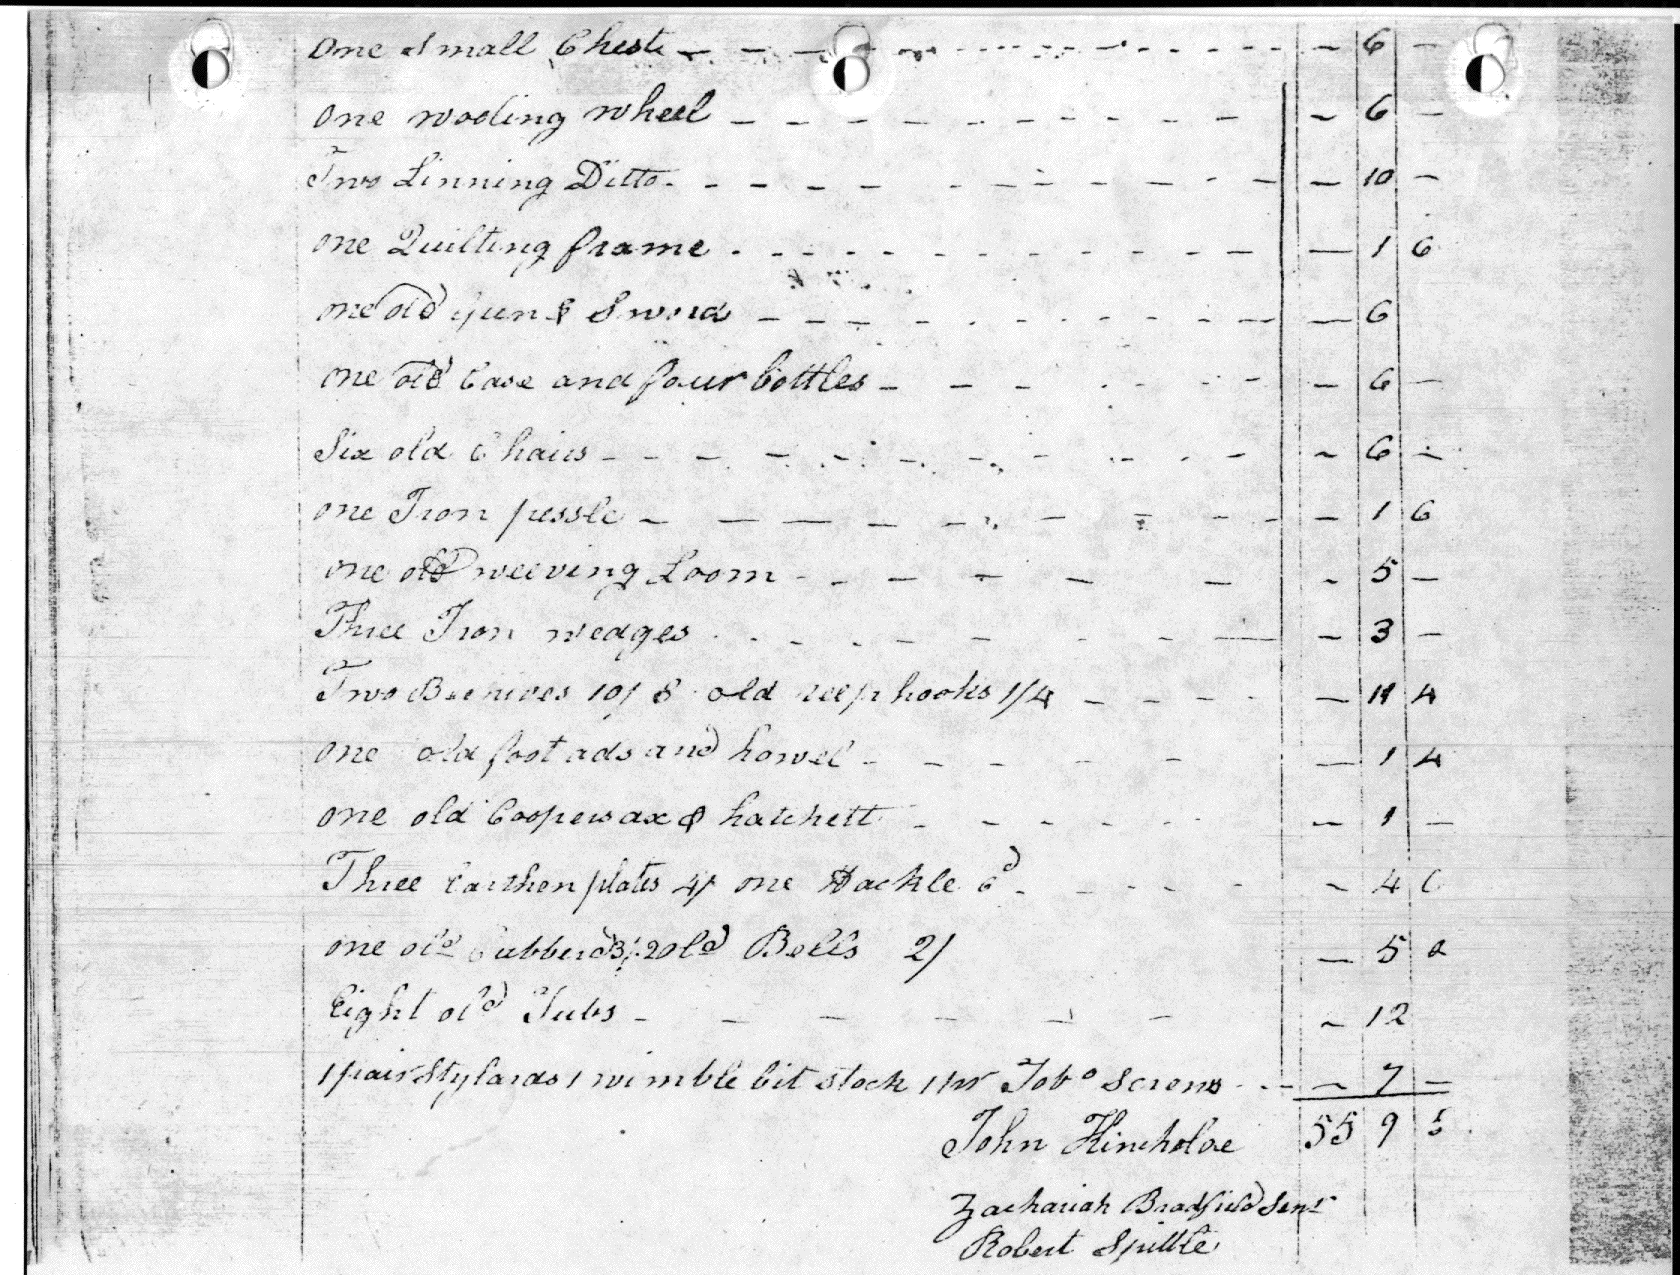 one Small Chest - - - 6 -
one wooling wheel - - - 6 -
Two Linning Ditto - - - 10 -
one Quilting frame - - - 1 6
one old gun & Sword - - - 6
one old Case and four bottles - - - 6 -
Six old Chairs - - - 6 -
one Iron pessle - - - 1 6
one old weeving Loom - - - 5 -
Three Iron wedges - - - 3 -
Two Beehives 10/ & old reep hooks 1/4 - - - 11 4
one old foot ads and howel - - - 1 4
one old Coopers ax & hatchett - - - 1 -
Three Earthen plates 4/ one Hackle 6d - - - 4 6
one old Cubberd 3/ 2 old Bells 2/ - 5 0
Eight old Tubs - - - 12
1 pair Stylards 1 wimble bit stock 1 pr Tobo Screws - - - 7 -
John Hincholoe 55 9 5
Zachariah Bradfield Senr
Robert Spittle